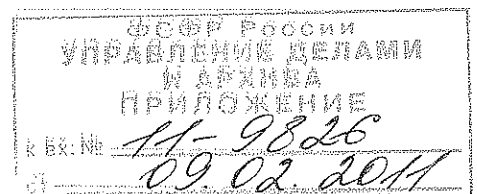 ФСФР России
УПРАВЛЕНИЕ ДЕЛАМИ
И АРХИВА
ПРИЛОЖЕНИЕ
к вх. № 11-9826
от 09 02 2011